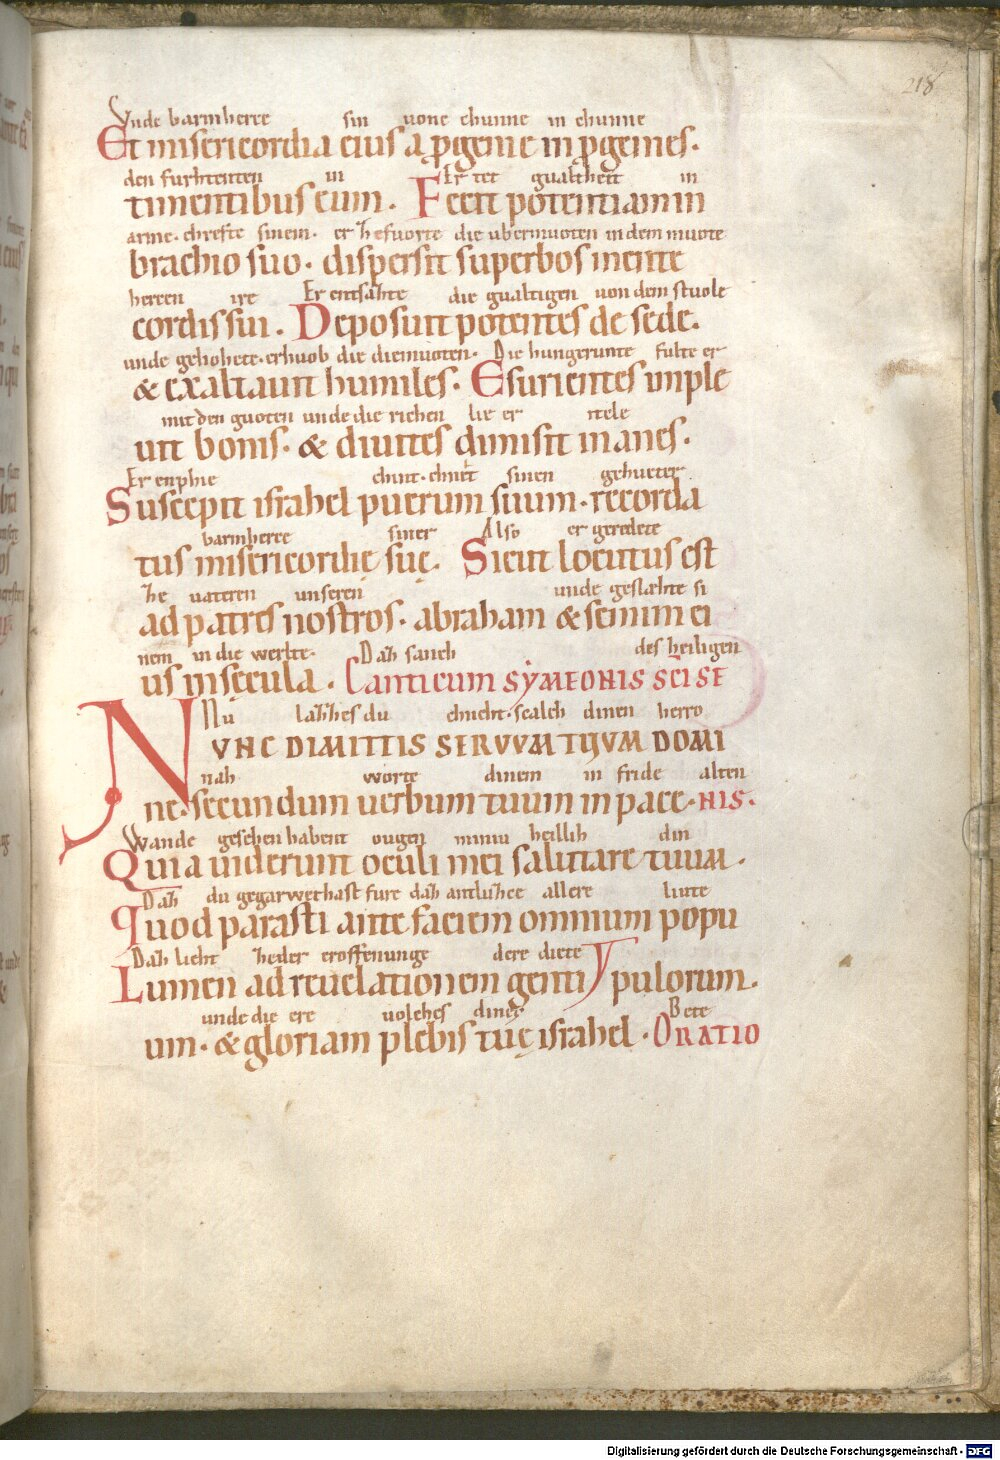 218
Vnde barmherce sin uone chunne in chunne
Et misericordia eius a ꝓgenie in ꝓgenies.
den furhtenten in Er tet gualtheit in
timentibus eum. Fecit potentiam in
arme. chrefte sinem. er zefuorte die ubermuoten in dem muote
brachio suo. dispersit superbos mente
hercen ire Er entsazte die gualtigen uon dem stuole
cordis sui. Deposuit potentes de sede.
unde gehohete. erhuob die diemuoten. Die hungerunte fulte er
& exaltauit humiles. Esurientes imple
mit den guoten unde die richen lie er itele
uit bonis. & diuites dimisit inanes.
Er enphie chint. chnet sinen gehucter
Suscepit israhel puerum suum. recorda
barmherce siner Also er geredete
tus misericordię suę. Sicut locutus est
ze uateren unseren unde geslæhte si
ad patres nostros. abraham & semini ei
nem in die werlte. Daz sanch des heiligen
us in sęcula. Canticum SYMEONIS SC̄I SE
Nu lazzes du chneht. scalch dinen herro
NVNC DIMITTIS SERVVM TVVM DOMI
nah worte dinem in fride alten
ne. secundum uerbum tuum in pace. NIS.
Wande gesehen habent ougen miniu heilli din
Quia uiderunt oculi mei salutare tuum.
Daz du gegarwet hast fure daz antluzce allere liute
Quod parasti ante faciem omnium popu
Daz lieht zeder eroffenunge dere diete
Lumen ad reuelationem genti pulorum.
unde die ere uolches dines Bete
um. & gloriam plebis tuę israhel. ORATIO
Digitalisierung gefördert durch die Deutsche Forschungsgemeinschaft - DFG